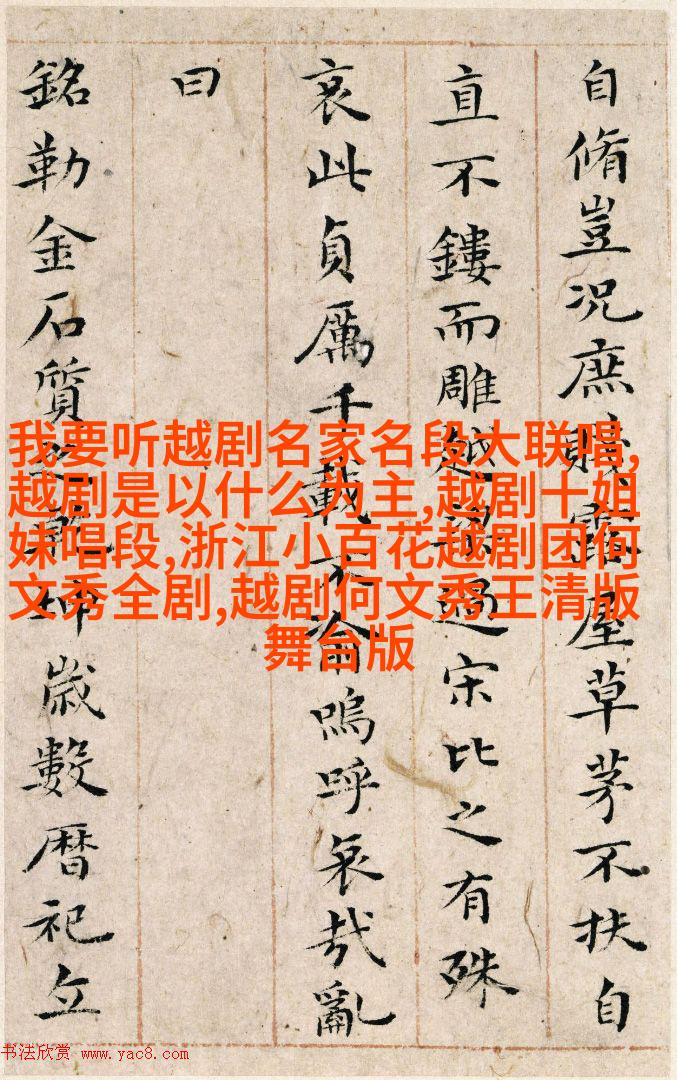 自脩豈況庶賤露屋草茅不扶自
直不鏤而雕越梁過宋比之有殊
哀此貞厲千載不淪嗚呼哀哉亂
曰
銘勒金石質之乾坤歲數暦祀立
我要听越剧名家名段大联唱,
越剧是以什么为主,越剧十姐
妹唱段,浙江小百花越剧团何
文秀全剧,越剧何文秀王清版
舞台版
书法欣赏 www.yac8.com